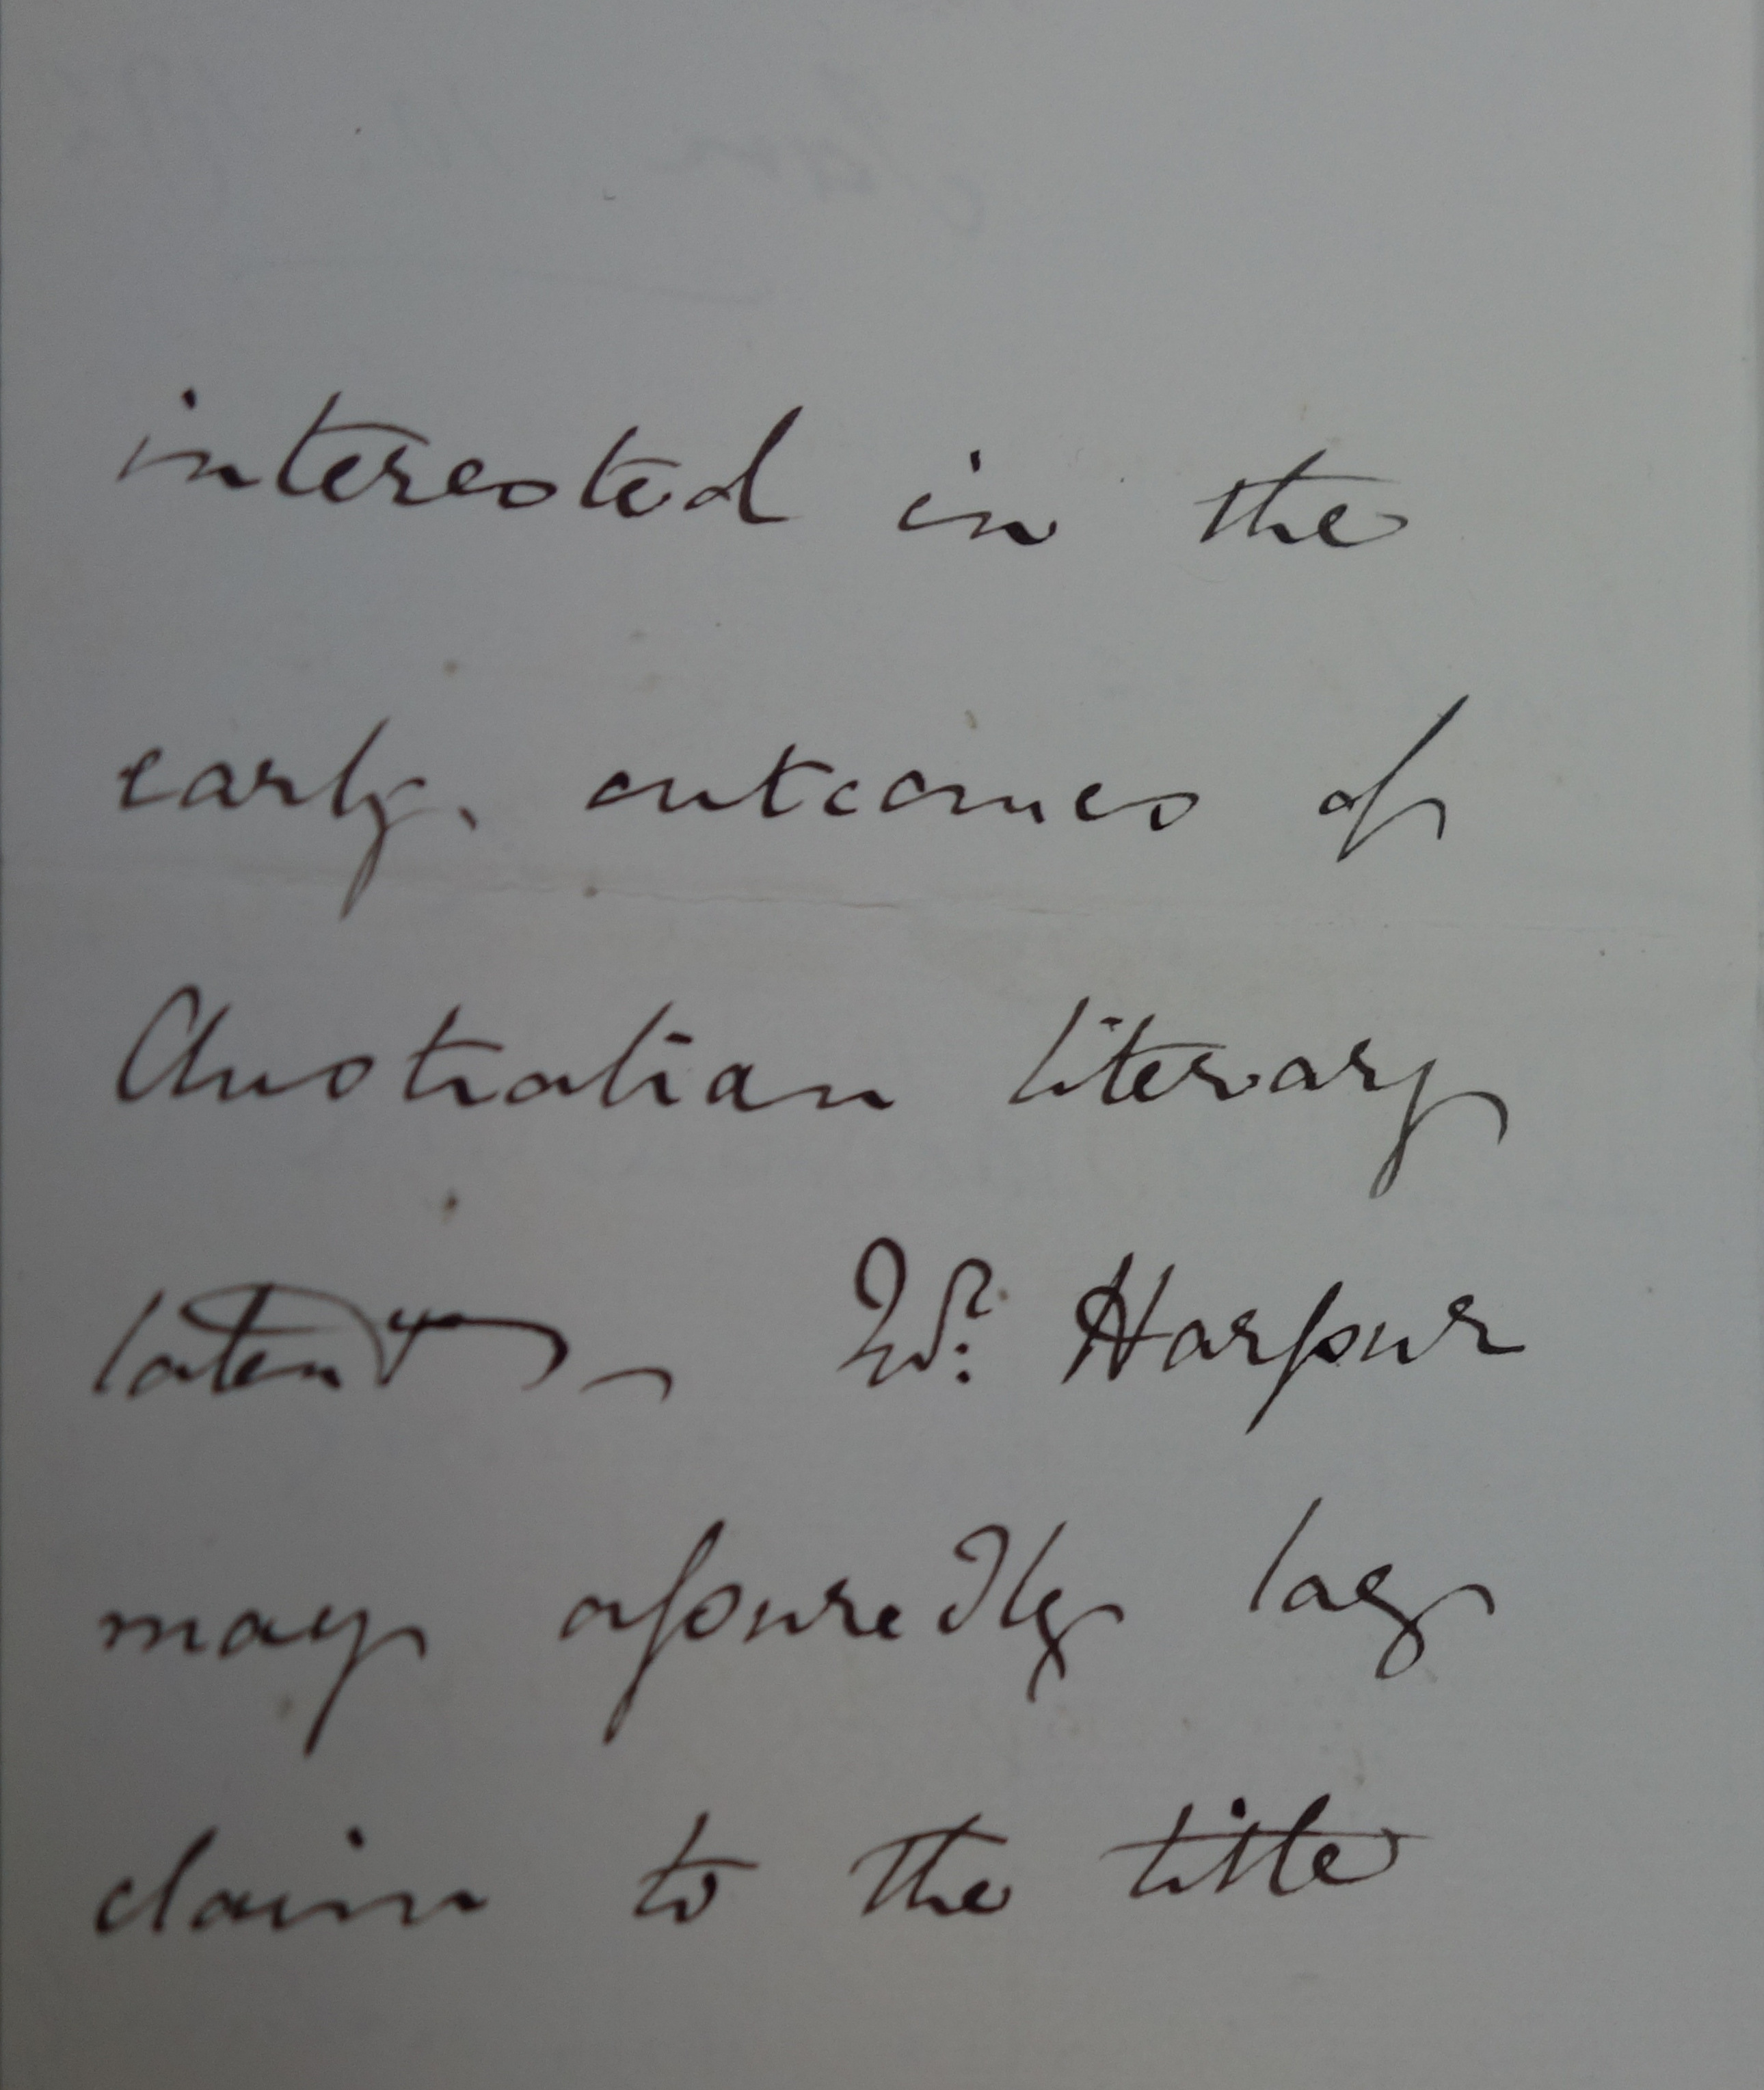 interested in the
early outcomes of
Australian literary
latent, Mr. Harpur
may assuredly lay
claim to the title